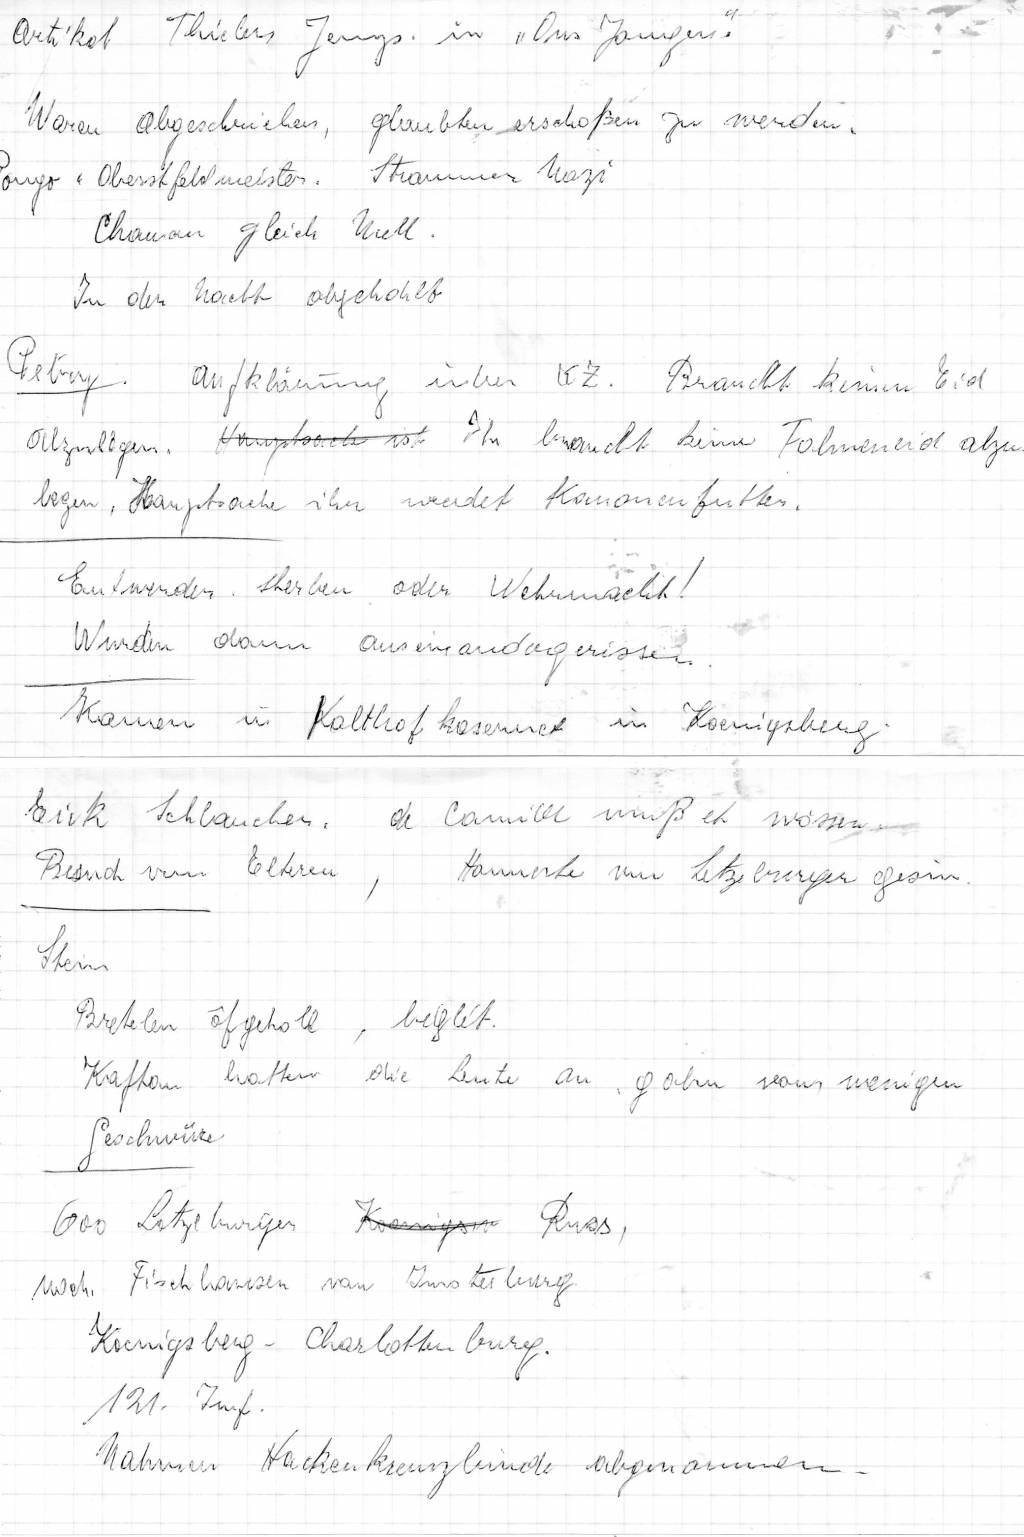 Artikel Thielers Jengs. in "Ons Jongen"
Waren abgeschrieben, glaubten erschoßen zu werden.
Pongo " Oberstfeldmeister. Strammer Nazi
gleich Null.
In der Nacht abgehohlt
Petry. Aufklärung über KZ. Braucht keinen Eid
abzulegen. Hauptsache ist Ihr braucht keine Fahneneid abzu-
legen, Hauptsache ihr werdet Kanonenfutter.
Entweder sterben oder Wehrmacht!
Wurden dann auseinandergerissen.
Kamen in Kalthofkaserne in Koenigsberg.
Erik Schlaucher. de Camill muß et wössen.
Besuch vun Elteren, Hannerte vun Letzeburger gesin.
Stein
Bretelen öfgeholl,
Kaftan hatten die Leute an, gaben vom wenigen
Geschwüre
600 Letzeburger Koenigsb Russ,
noch. Fischhausen van Insterburg
Koenigsberg - Charlottenburg.
121. Inf.
Nahmen Hackenkreuzbinde abgenommen.